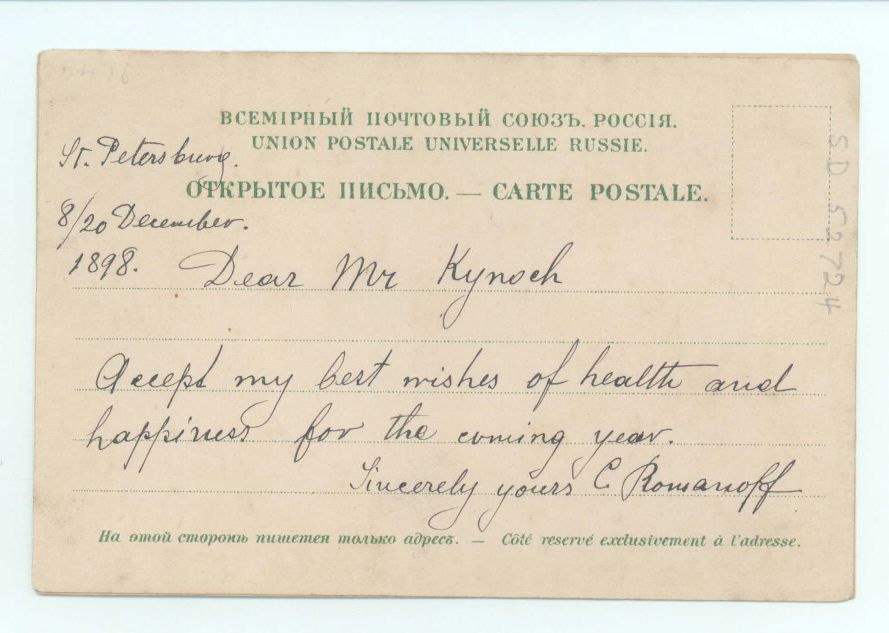 ВСЕМІРНЫЙ ПОЧТОВЫЙ СОЮЗЪ. РОССІЯ.
UNION POSTALE UNIVERSELLE RUSSIE.
ОТКРЫТОЕ ПИСЬМО. — CARTE POSTALE.
St. Petersburg.
8/20 December.
1898.
Dear Mr Kynoch
Accept my best wishes of health and
happiness for the coming year.
Sincerely yours C Romanoff
На этой сторонѣ пишется только адресъ. — Côté reservé exclusivement à l'adresse.
SD 52724